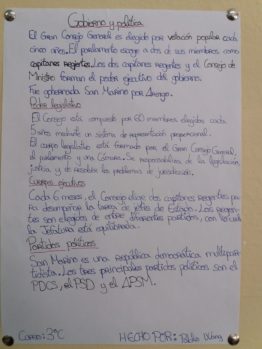 Gobierno y política
El Gran Consejo General es elegido por votación popular cada
cinco años. El parlamento escoge a dos de sus miembros como
capitanes regentes. Los dos capitanes regentes y el Consejo de
Ministro forman el poder ejecutivo del gobierno.
Fue gobernada San Marino por Arengo.
Poder legislativo
El Consejo está compuesto por 60 miembros elegidos cada
5 años mediante un sistema de representación proporcional.
El cuerpo legislativo está formado por el Gran Consejo General,
el parlamento y una Cámara. Se responsabiliza de la legislación
justicia, y de resolver los problemas de jurisdicción.
Cuerpos ejecutivos
Cada 6 meses, el Consejo elige dos capitanes regentes para
para desempeñar la tarea de jefes de Estado. Los regentes
son elegidos de entre diferentes partidos, con
la Jefatura está equilibrada.
Partidos políticos
San Marino es una República democrática multipar-
tidista. Los tres principales partidos políticos son el
PDCS, el PSD y el APSM.
Curso: 3ºC
HECHO POR: Pablo